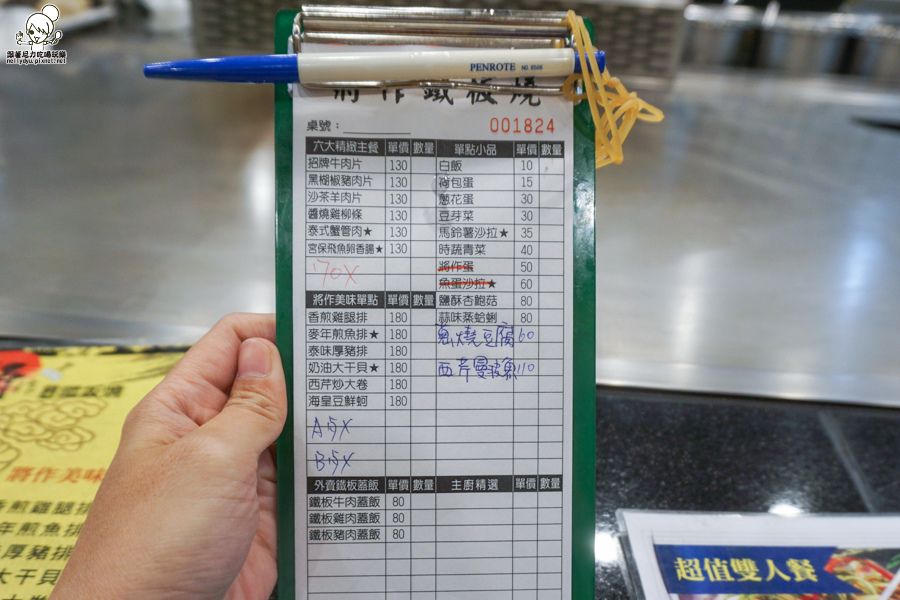 跟著尼力吃喝玩樂
nellydyu.pixnet.net
PENROTE NO. 6506
將作鐵板燒
桌號：
001824
六大精緻主餐 單價 數量
招牌牛肉片 130
黑椒椒豬肉片 130
沙茶羊肉片 130
醬燒雞柳條 130
泰式蟹管肉★ 130
宮保飛魚卵香腸★ 130
將作美味單點 單價 數量
香煎雞腿排 180
麥年煎魚排★ 180
泰味厚豬排 180
奶油大干貝★ 180
西芹炒大卷 180
海皇豆鮮蚵 180
外賣鐵板蓋飯 單價 數量
鐵板牛肉蓋飯 80
鐵板雞肉蓋飯 80
鐵板豬肉蓋飯 80
單點小品 單價 數量
白飯 10
荷包蛋 15
蔥花蛋 30
豆芽菜 30
馬鈴薯沙拉★ 35
時蔬青菜 40
將作蛋 50
魚蛋沙拉★ 60
鹽酥杏鮑菇 80
蒜味蒸蛤蜊 80
蔥燒豆腐 60
西芹曼波魚 110
主廚精選 單價 數量
將作美味
香煎雞腿排
年煎魚排
厚豬排
大干貝
超值雙人餐